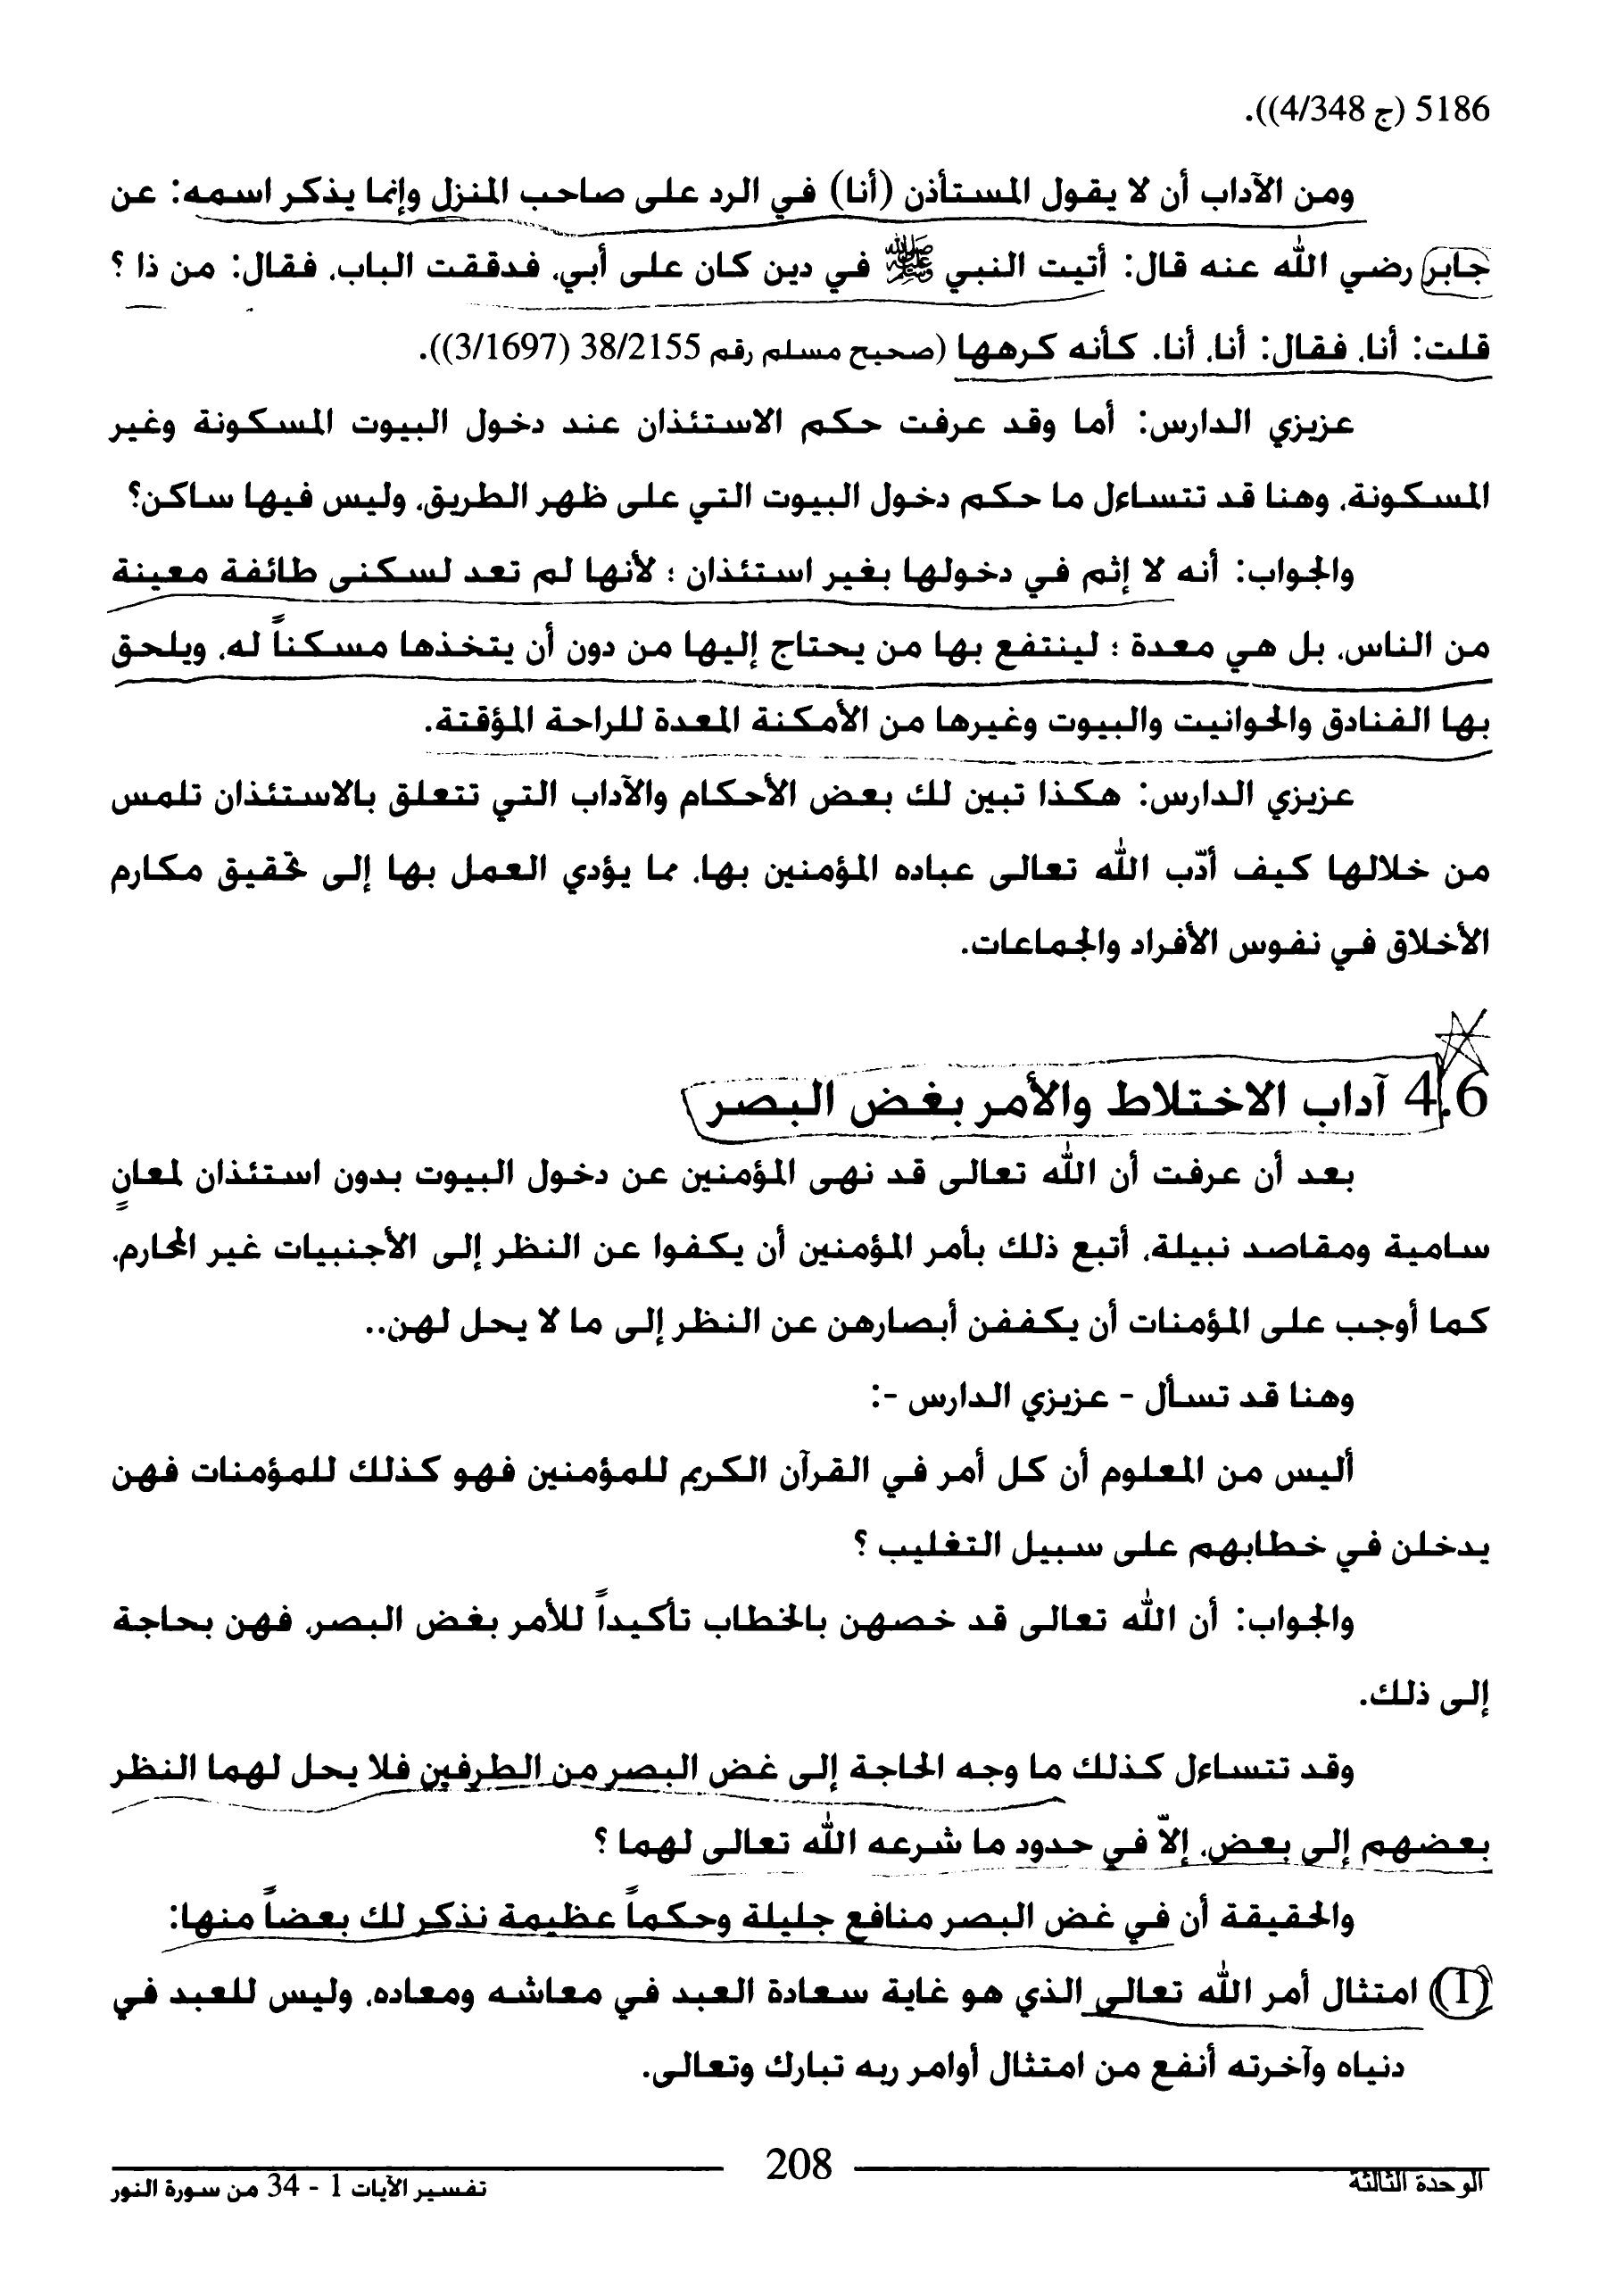 5186 (ج 4/348)).
ومن الآداب أن لا يقول المستأذن (أنا) في الرد على صاحب المنزل وإنما يذكر اسمه: عن
جابر رضي الله عنه قال: أتيت النبي ﷺ في دين كان على أبي، فدققت الباب، فقال: من ذا ؟
قلت: أنا، فقال: أنا، أنا. كأنه كرهها (صحيح مسلم رقم 38/2155 (3/1697)).
عزيزي الدارس: أما وقد عرفت حكم الاستئذان عند دخول البيوت المسكونة وغير
المسكونة، وهنا قد تتساءل ما حكم دخول البيوت التي على ظهر الطريق، وليس فيها ساكن؟
والجواب: أنه لا إثم في دخولها بغير استئذان ؛ لأنها لم تعد لسكنى طائفة معينة
من الناس، بل هي معدة ؛ لينتفع بها من يحتاج إليها من دون أن يتخذها مسكناً له، ويلحق
بها الفنادق والحوانيت والبيوت وغيرها من الأمكنة المعدة للراحة المؤقتة.
عزيزي الدارس: هكذا تبين لك بعض الأحكام والآداب التي تتعلق بالاستئذان تلمس
من خلالها كيف أدّب الله تعالى عباده المؤمنين بها، مما يؤدي العمل بها إلى تحقيق مكارم
الأخلاق في نفوس الأفراد والجماعات.
4.6 آداب الاختلاط والأمر بغض البصر
بعد أن عرفت أن الله تعالى قد نهى المؤمنين عن دخول البيوت بدون استئذان لمعانٍ
سامية ومقاصد نبيلة، أتبع ذلك بأمر المؤمنين أن يكفوا عن النظر إلى الأجنبيات غير المحارم،
كما أوجب على المؤمنات أن يكففن أبصارهن عن النظر إلى ما لا يحل لهن..
وهنا قد تسأل - عزيزي الدارس -:
أليس من المعلوم أن كل أمر في القرآن الكريم للمؤمنين فهو كذلك للمؤمنات فهن
يدخلن في خطابهم على سبيل التغليب ؟
والجواب: أن الله تعالى قد خصهن بالخطاب تأكيداً للأمر بغض البصر، فهن بحاجة
إلى ذلك.
وقد تتساءل كذلك ما وجه الحاجة إلى غض البصر من الطرفين فلا يحل لهما النظر
بعضهم إلى بعض، إلاّ في حدود ما شرعه الله تعالى لهما ؟
والحقيقة أن في غض البصر منافع جليلة وحكماً عظيمة نذكر لك بعضاً منها:
(1) امتثال أمر الله تعالى الذي هو غاية سعادة العبد في معاشه ومعاده، وليس للعبد في
دنياه وآخرته أنفع من امتثال أوامر ربه تبارك وتعالى.
الوحدة الثالثة 208 تفسير الآيات 1 - 34 من سورة النور